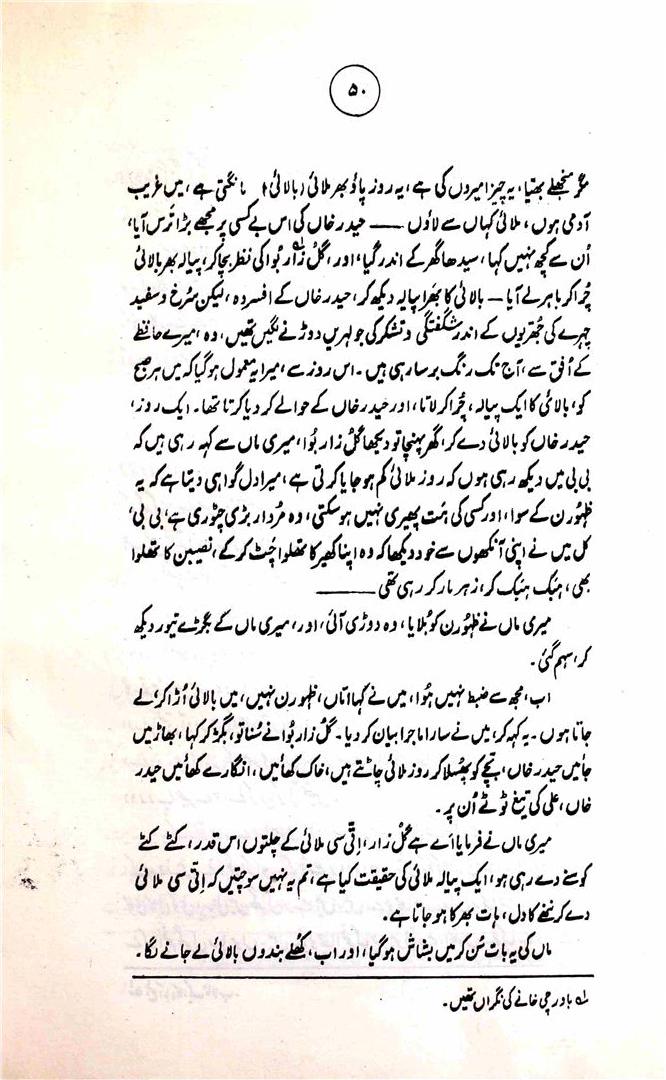 ۵۰
مگر منجھلے بھیّا، یہ چیز امیروں کی ہے، یہ روز پاؤ بھر ملائی (بالائی) مانگتی ہے، میں غریب
آدمی ہوں، ملائی کہاں سے لاؤں —— حیدر خاں کی اس بے کسی پر مجھے بڑا ترس آیا،
اُن سے کچھ نہیں کہا، سیدھا گھر کے اندر گیا، اور، گُل زار بُوا کی نظر بچا کر، پیالہ بھر بالائی
چُرا کر باہر لے آیا — بالائی کا بھرا پیالہ دیکھ کر، حیدر خاں کے افسردہ، لیکن سُرخ و سفید
چہرے کی جھُریوں کے اندر شگفتگی و تشکر کی جو لہریں دوڑنے لگیں تھیں، وہ، میرے حافظے
کے اُفق سے، آج تک رنگ برسا رہی ہیں۔ اس روز سے، میرا یہ معمول ہو گیا کہ میں ہر صبح
کو، بالائی کا ایک پیالہ، چُرا کر لاتا، اور حیدر خاں کے حوالے کر دیا کرتا تھا۔ ایک روز،
حیدر خاں کو بالائی دے کر، گھر پہنچا تو دیکھا گُل زار بُوا، میری ماں سے کہہ رہی ہیں کہ
بی بی میں دیکھ رہی ہوں کہ روز ملائی کم ہو جایا کرتی ہے، میرا دل گواہی دیتا ہے کہ یہ
ظہورن کے سوا، اور کسی کی ہمت پھیری نہیں ہو سکتی، وہ مُردار بڑی چٹّوری ہے، بی بی،
کل میں نے اپنی آنکھوں سے خود دیکھا کہ وہ اپنا کھیر کا تھلوا چٹ کر کے، نصیبن کا تھلوا
بھی، ہبک ہبک کر، زہر مار کر رہی تھی ——
میری ماں نے ظہورن کو بُلایا، وہ دوڑی آئی، اور، میری ماں کے بگڑے تیور دیکھ
کر، سہم گئی۔
اب، مجھ سے ضبط نہیں ہُوا، میں نے کہا امّاں، ظہورن نہیں، میں بالائی اُڑا کر، لے
جاتا ہوں۔ یہ کہہ کر، میں نے سارا ماجرا بیان کر دیا۔ گُل زار بُوا نے سُنا تو، بگڑ کر کہا، بھاڑ میں
جائیں حیدر خاں، بچّے کو پھُسلا کر روز ملائی چاٹتے ہیں، خاک کھائیں، انگارے کھائیں حیدر
خاں، علی کی تیغ ٹوٹے اُن پر۔
میری ماں نے فرمایا اے ہے گُل زار، اِتّی سی ملائی کے چلتوں اس قدر، کٹے کٹے
کوسنے دے رہی ہو، ایک پیالہ ملائی کی حقیقت کیا ہے، تم یہ نہیں سوچتیں کہ اِتّی سی ملائی
دے کر ننھے کا دل، ہات بھر کا ہو جاتا ہے۔
ماں کی یہ بات سُن کر میں بشاش ہو گیا، اور اب، کھُلے بندوں بالائی لے جانے لگا۔
لہ باورچی خانے کی نگراں تھیں۔